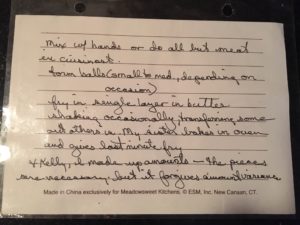 Mix w/ hands or do all but meat
in cuisinart.
form balls (small to med., depending on
occasion)
fry in single layer in butter
shaking occasionally, transferring some
as others in. My sister bakes in oven
and gives last minute fry
Kelly, I made up amounts - The pieces
are necessary but it forgives amount variance
Made in China exclusively for Meadowsweet Kitchens, © ESM, Inc. New Canaan, CT.